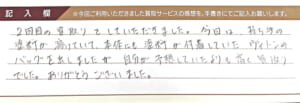 記入欄 ※今回ご利用いただきました買取サービスの感想を、手書きにてご記入お願いします。
2回目の買取りをしていただきました。今回は、お手持の
塗料が溶けていて、本体にも塗料が付着していた ヴィトンの
バッグを出しましたが 自分が予想していたよりも高く買取り
でした。ありがとうございました。